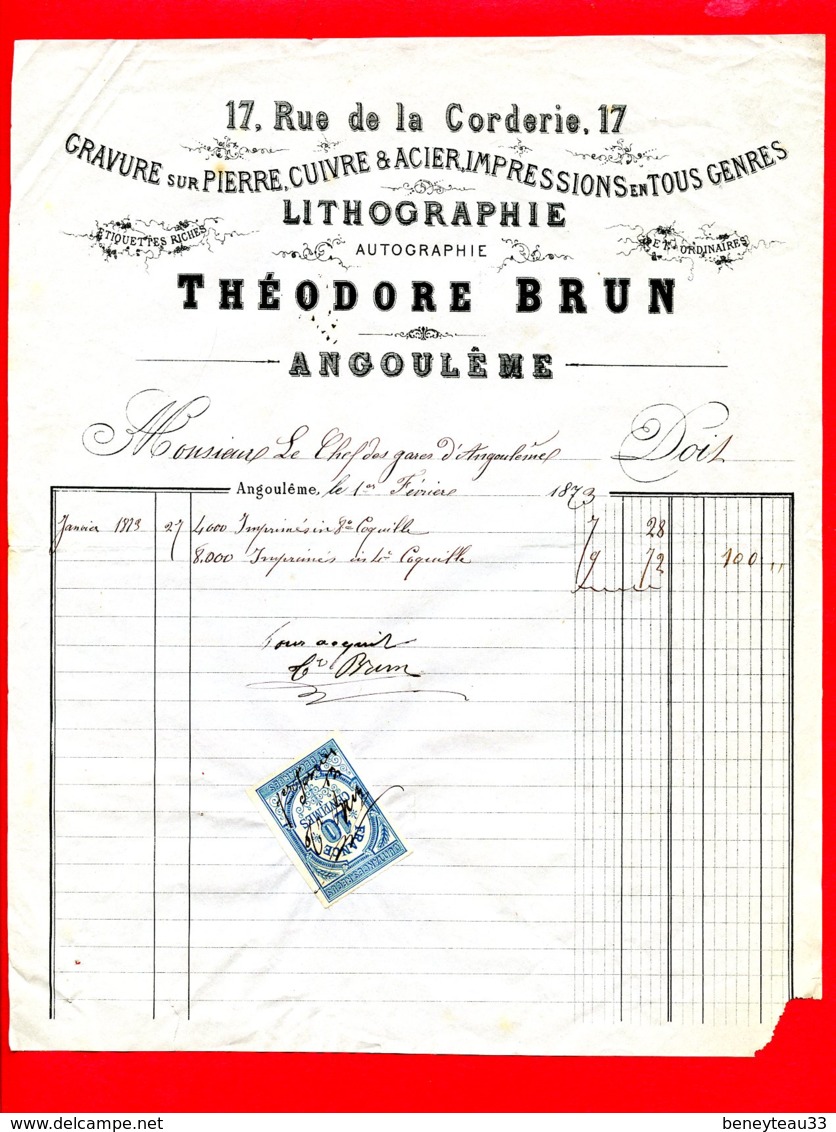 17, Rue de la Corderie, 17
GRAVURE SUR PIERRE, CUIVRE & ACIER, IMPRESSIONS EN TOUS GENRES
LITHOGRAPHIE
ÉTIQUETTES RICHES AUTOGRAPHIE ET ORDINAIRES
THÉODORE BRUN
ANGOULÊME
Monsieur Le Chef des gares d'Angoulême Doit
Angoulême, le 1er Février 1873
Janvier 1873 27 4000 Imprimés in 8o Coquille 7 28
8.000 Imprimés in 4o Coquille 9 72 100 "
Pour acquit
Brun
QUITTANCES REÇUS
10
CENTIMES
FRANCE
delcampe.net
beneyteau33